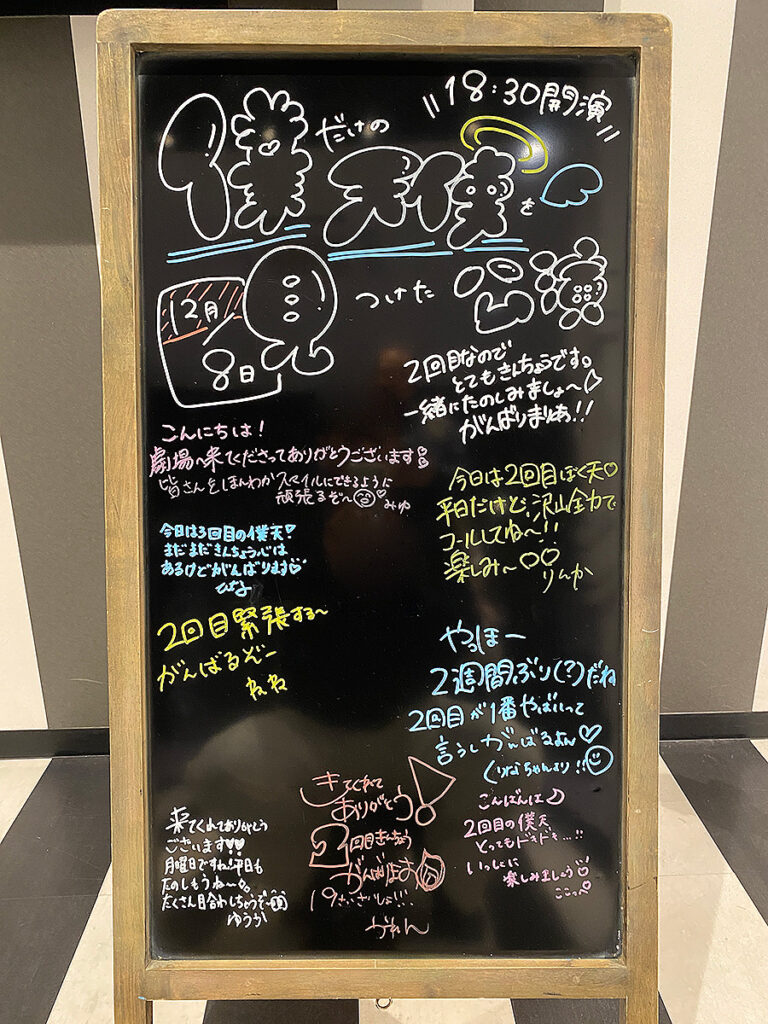 18:30開演
僕だけの天使を
見つけた公演
12月
8日
2回目なので
とてもきんちょうです。
一緒にたのしみましょ〜
がんばりまりあ!!
こんにちは!
劇場へ来てくださってありがとうございます
皆さんをほんわかスマイルにできるように
頑張るぞ〜 みゆ
今日は2回目ぼく天♡
平日だけど、沢山全力で
コールしてね〜!!
楽しみ〜♡♡
りんか
今日は3回目の僕天!
まだまだきんちょう心は
あるけどがんばります♡
2回目緊張する〜
がんばるぞー
ねね
やっほー
2週間ぶり(?)だね
2回目が1番やばいって
言うしがんばるよん♡
来てくれてありがとう
ございます♥♥
月曜日ですね!平日も
たのしもうね〜。
たくさん目合わしちゃうぞ〜
ゆうか
きてくれて
ありがとう!
2回目きんちょう
がんばります
19さいさいしょ!!
かれん
こんばんは☽
2回目の僕天
とってもドキドキ...!!
いっしょに
楽しみましょう♡
ここっぺ